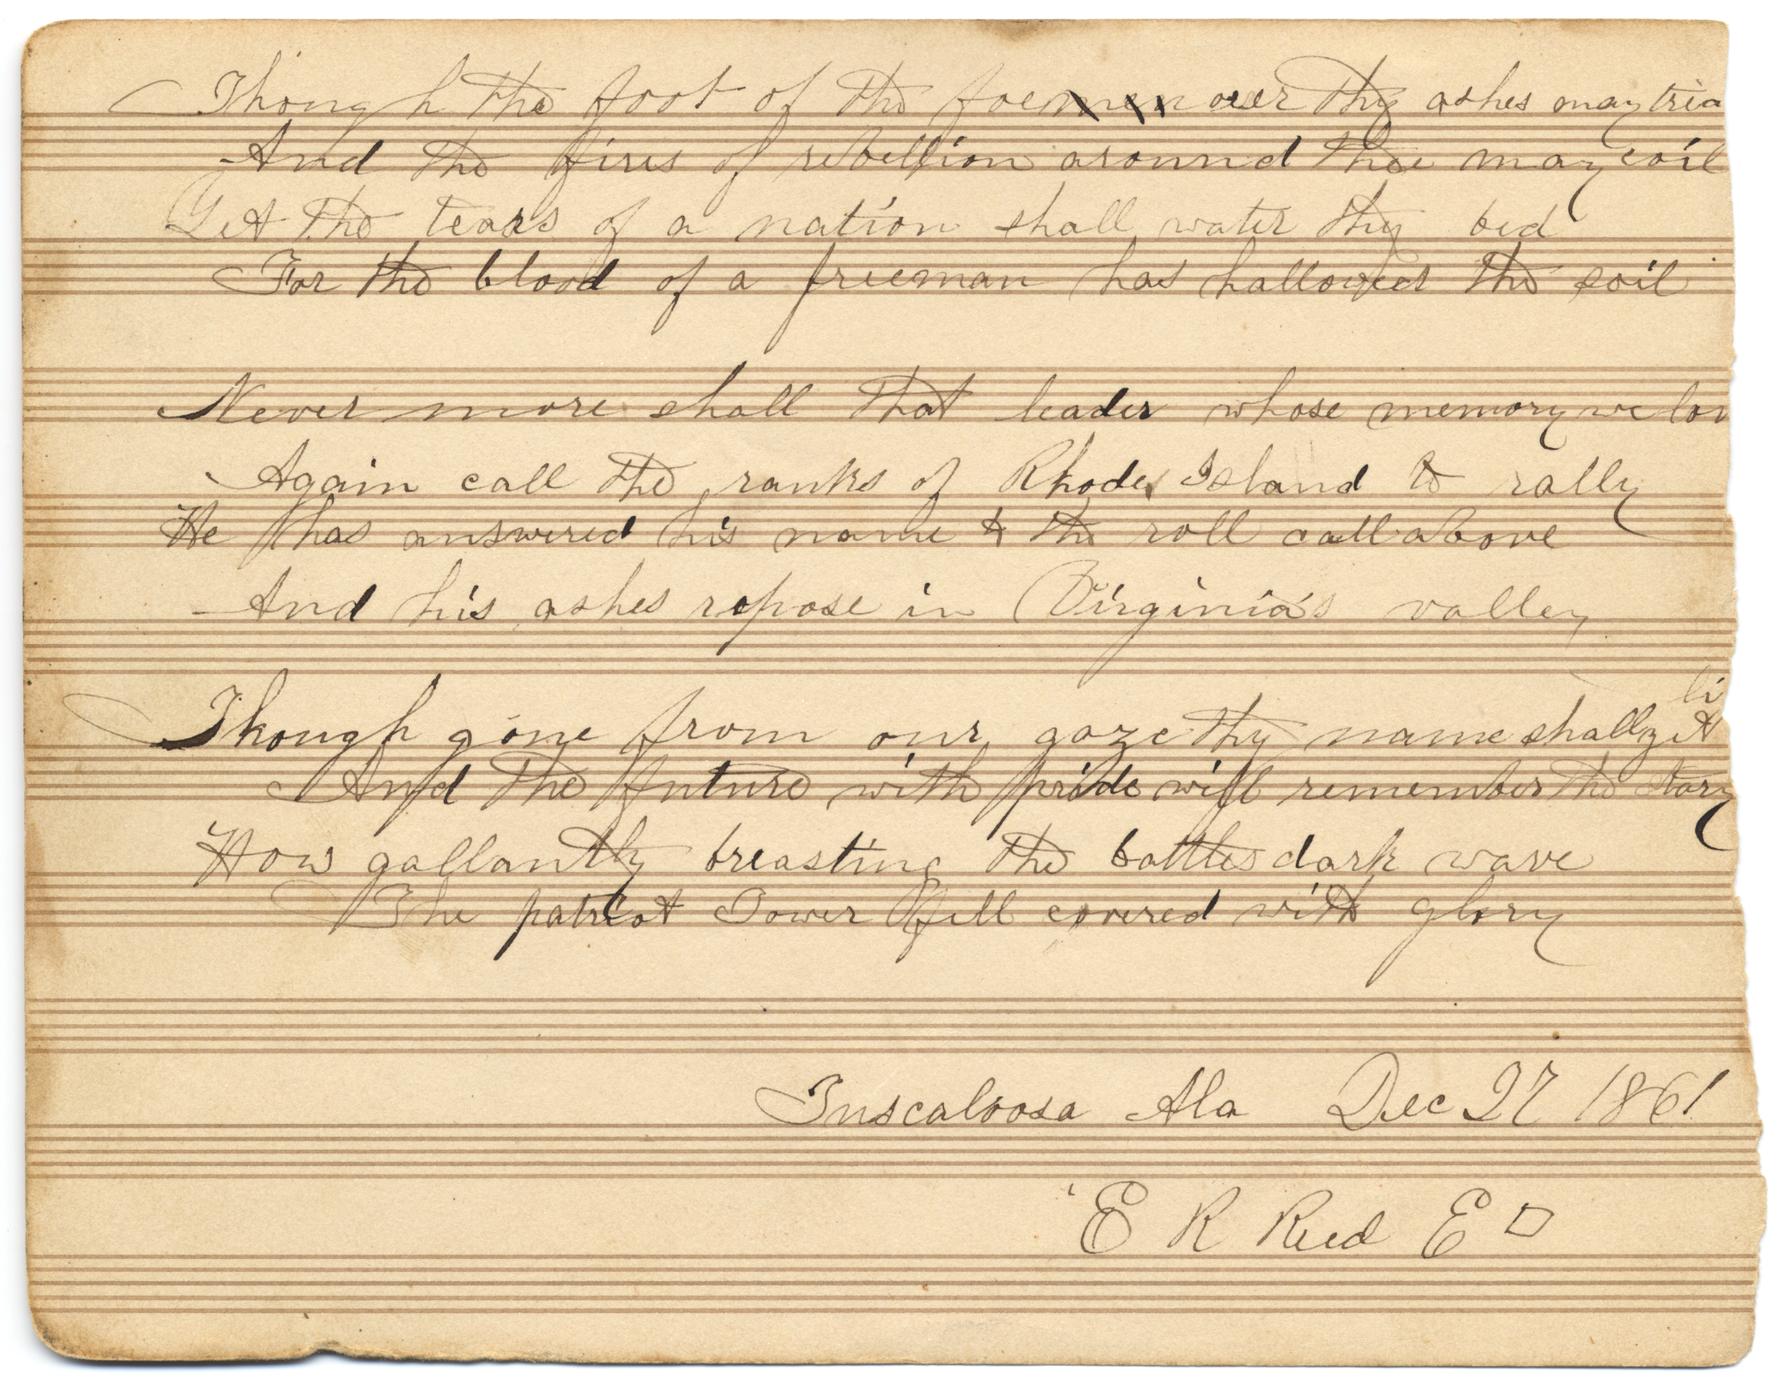 Though the foot of the foemen over thy ashes may
And the fires of rebellion around thee may coil
Yet the tears of a nation shall water thy bed
For the blood of a freeman has hallowed the soil
Never more shall that leader whose memory we
Again call the ranks of Rhode Island to rally
He has answered his name & the roll call above
And his ashes repose in Virginia's valley
Though gone from our gaze thy name shall yet
And the future with pride will remember the story
How gallantly breasting the battles dark wave
The patriot Tower fell covered with glory
Tuscaloosa Ala Dec 27 1861
E R Reed E □